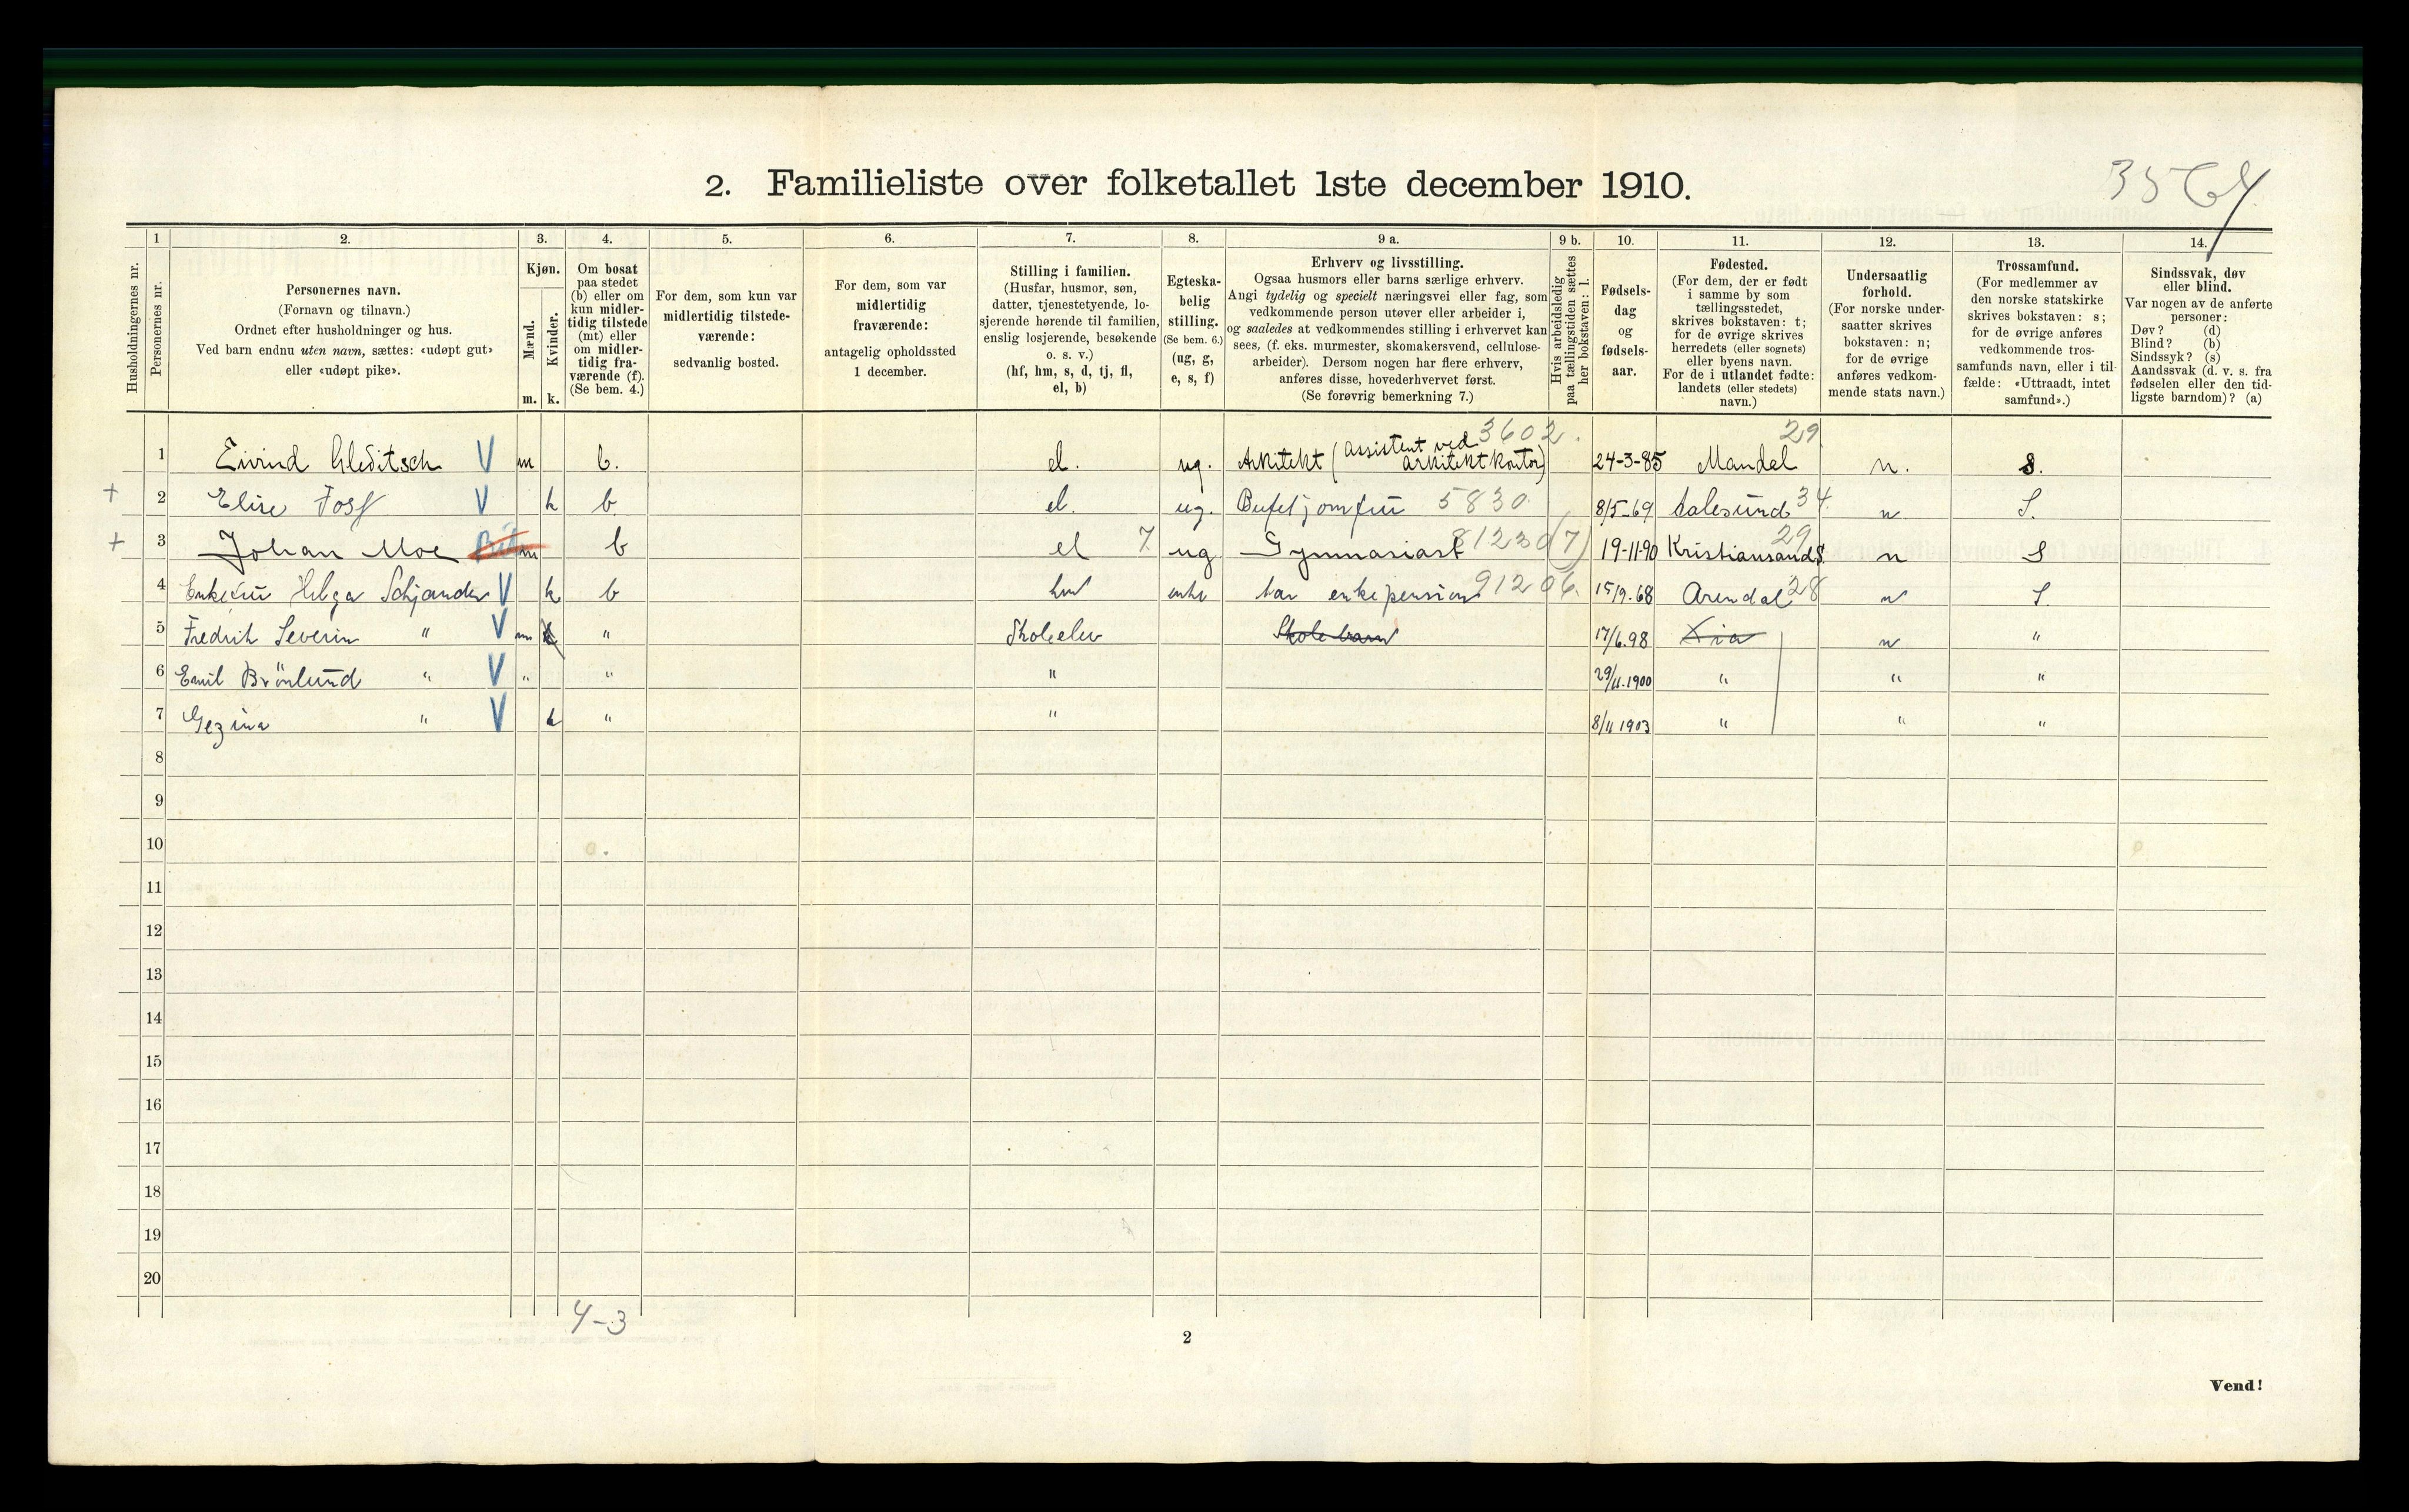 3564
2. Familieliste over folketallet 1ste december 1910.
1 2. 3. 4. 5. 6. 7. 8. 9 a. 9 b. 10. 11. 12. 13. 14.
Husholdningernes nr.
Personernes nr.
Personernes navn.
(Fornavn og tilnavn.)
Ordnet efter husholdninger og hus.
Ved barn endnu uten navn, sættes: «udøpt gut»
eller «udøpt pike».
Kjøn.
Mænd.
Kvinder.
m. k.
Om bosat
paa stedet
(b) eller om
kun midler-
tidig tilstede
(mt) eller
om midler-
tidig fra-
værende (f).
(Se bem. 4.)
For dem, som kun var
midlertidig tilstede-
værende:
sedvanlig bosted.
For dem, som var
midlertidig
fraværende:
antagelig opholdssted
1 december.
Stilling i familien.
(Husfar, husmor, søn,
datter, tjenestetyende, lo-
sjerende hørende til familien,
enslig losjerende, besøkende
o. s. v.)
(hf, hm, s, d, tj, fl,
el, b)
Egteska-
belig
stilling.
(Se bem. 6.)
(ug, g,
e, s, f)
Erhverv og livsstilling.
Ogsaa husmors eller barns særlige erhverv.
Angi tydelig og specielt næringsvei eller fag, som
vedkommende person utøver eller arbeider i,
og saaledes at vedkommendes stilling i erhvervet kan
sees, (f. eks. murmester, skomakersvend, cellulose-
arbeider). Dersom nogen har flere erhverv,
anføres disse, hovederhvervet først.
(Se forøvrig bemerkning 7.)
Hvis arbeidsledig
paa tællingstiden sættes
her bokstaven: l.
Fødsels-
dag
og
fødsels-
aar.
Fødested.
(For dem, der er født
i samme by som
tællingsstedet,
skrives bokstaven: t;
for de øvrige skrives
herredets (eller sognets)
eller byens navn.
For de i utlandet fødte:
landets (eller stedets)
navn.)
Undersaatlig
forhold.
(For norske under-
saatter skrives
bokstaven: n;
for de øvrige
anføres vedkom-
mende stats navn.)
Trossamfund.
(For medlemmer av
den norske statskirke
skrives bokstaven: s;
for de øvrige anføres
vedkommende tros-
samfunds navn, eller i til-
fælde: «Uttraadt, intet
samfund».)
Sindssvak, døv
eller blind.
Var nogen av de anførte
personer:
Døv? (d)
Blind? (b)
Sindssyk? (s)
Aandssvak (d. v. s. fra
fødselen eller den tid-
ligste barndom)? (a)
3602. 29
1 Eivind Gleditsch V m b. el. ug. Arkitekt (assistent ved arkitektkontor) 24-3-85 Mandal n. s.
+ 2 Elise Foss V k b el. ug. Bufetjomfru 5830 8/5-69 Aalesund 34 n S.
+ 3 Johan Moe m b el 7 ug Gymnasiast 81230 (7) 19-11-90 Kristiansand S. 29 n S
4 Enkefru Helga Schjander V k b hm enke har enkepension 91206. 15/9.68 Arendal 28 n S.
5 Fredrik Severin " V m k " Skoleelev Skolebarn 17/6.98 Xia n "
6 Emil Brönlund " V " " " 29/11.1900 " " "
7 Gezina " V k " " 8/11 1903 " " "
8
9
10
11
12
13
14
15
16
17
18
19
20
4-3
2
Vend!